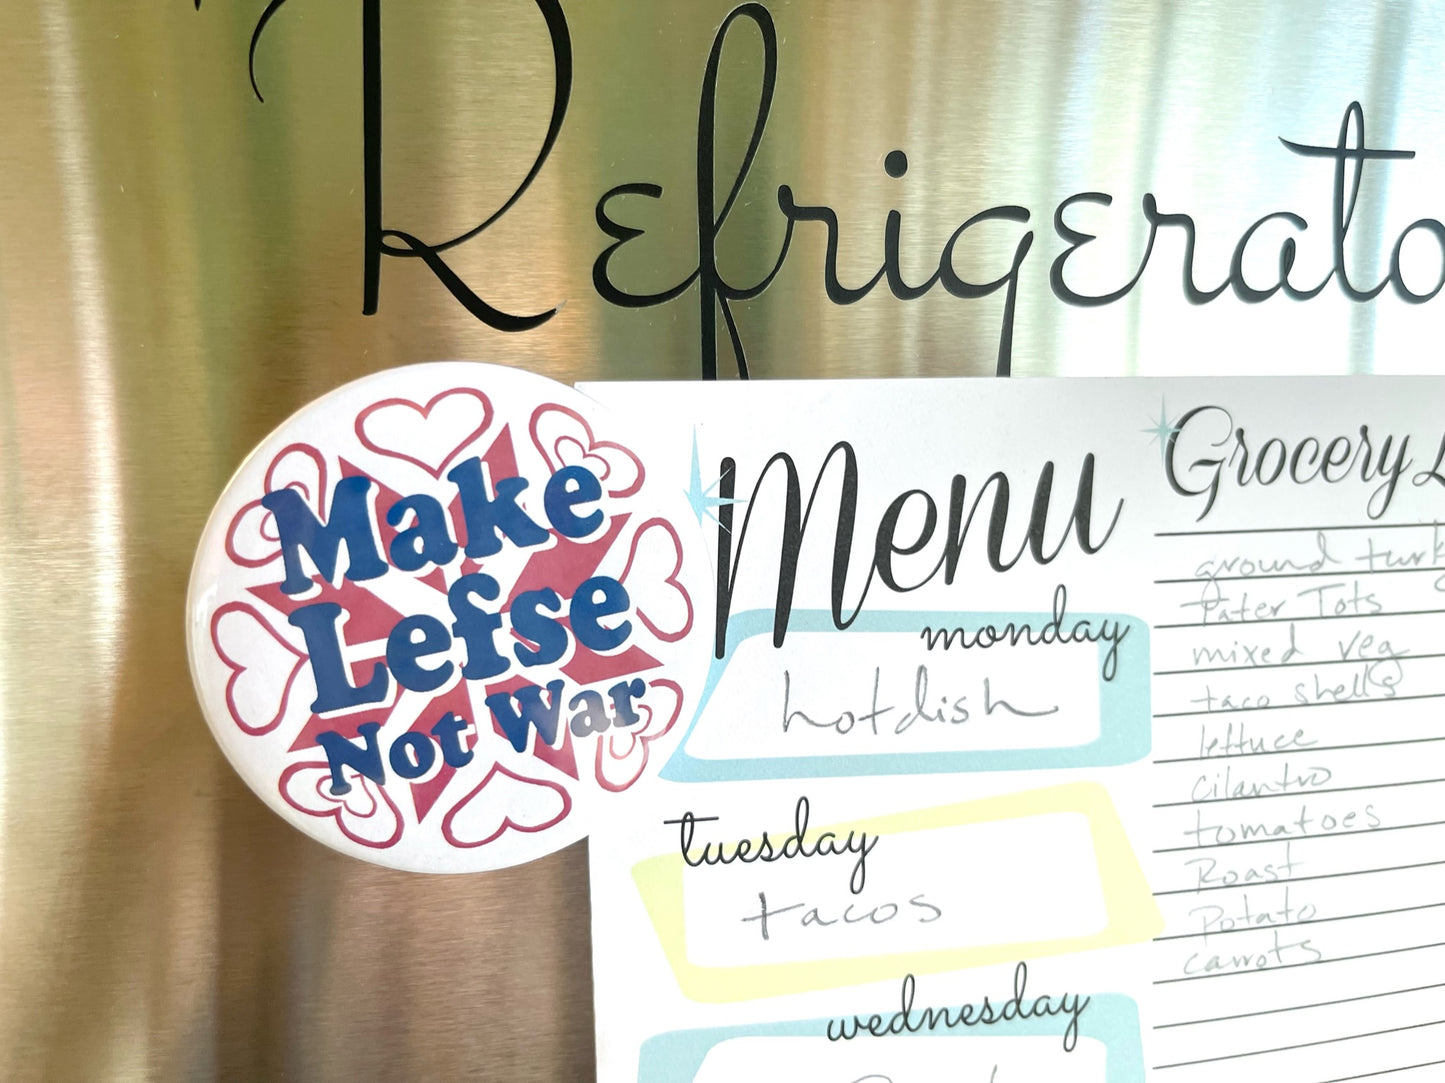 Refrigerato
Make
Lefse
Not War
Menu
monday
hotdish
tuesday
tacos
wednesday
Grocery L
ground turk
Tater Tots
mixed veg
taco shells
lettuce
cilantro
tomatoes
Roast
Potato
carrots